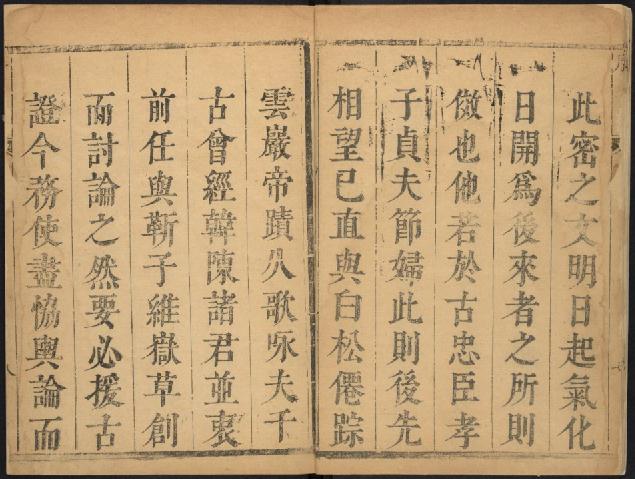 此密之文明日起氣化
日開爲後來者之所則
傚也他若於古忠臣孝
子貞夫節婦此則後先
相望已直與白松僊踪
雲巖帝蹟八歌咏夫千
古曾經韓陳諸君並衷
前任與靳子維嶽草創
而討論之然要必援古
證今務使盡恊輿論而